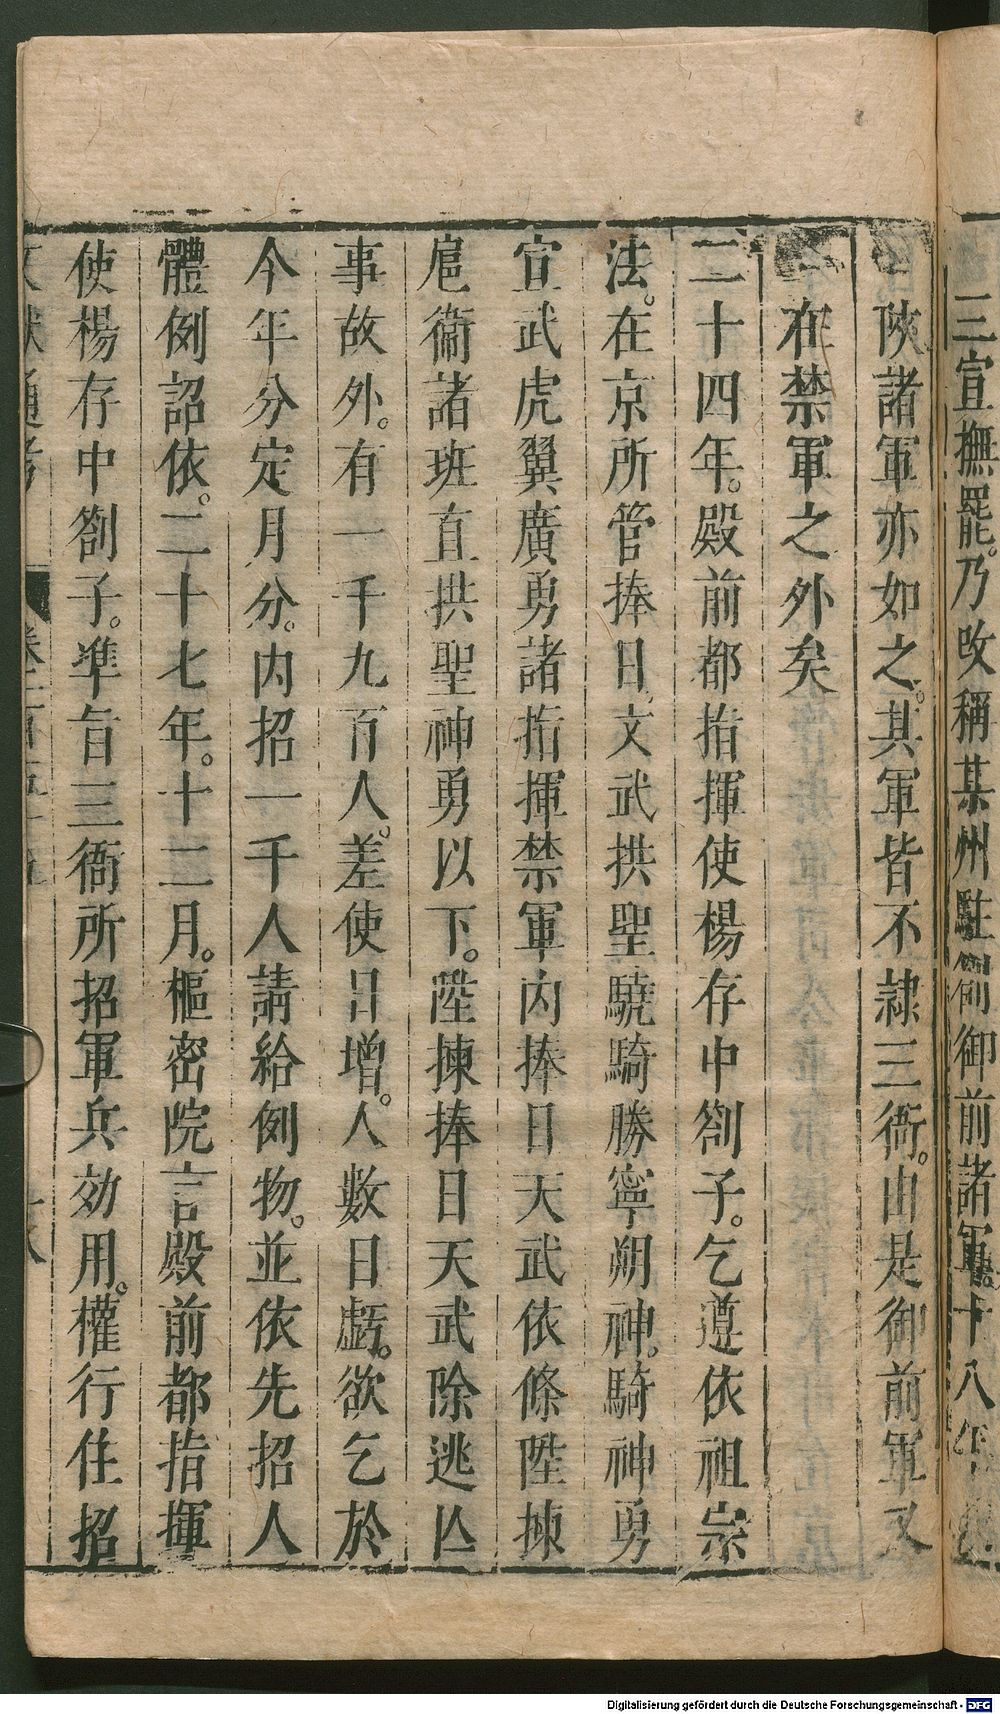 三宣撫罷。乃改稱某州駐劄御前諸軍十八年
陝諸軍亦如之。其軍皆不隸三衙。由是御前軍又
在禁軍之外矣
二十四年。殿前都指揮使楊存中劄子。乞遵依祖宗
法。在京所管捧日、文武拱聖驍騎勝寧朔神。騎神勇
宣武虎翼廣勇諸指揮禁軍內捧日天武依條陞揀
扈衛諸班直拱聖神勇以下。陞揀捧日天武除逃亾
事故外。有一千九百人。差使日增。人數日虧。欲乞於
今年分定月分。內招一千人請給例物。並依先招人
體例詔依。二十七年。十二月。樞密院言殿前都指揮
使楊存中劄子。準旨三衙所招軍兵効用。權行住招
文獻通考
Digitalisierung gefördert durch die Deutsche Forschungsgemeinschaft - DFG